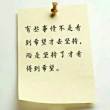 有些事情不是看
到希望才去坚持,
而是坚持了才看
得到希望。